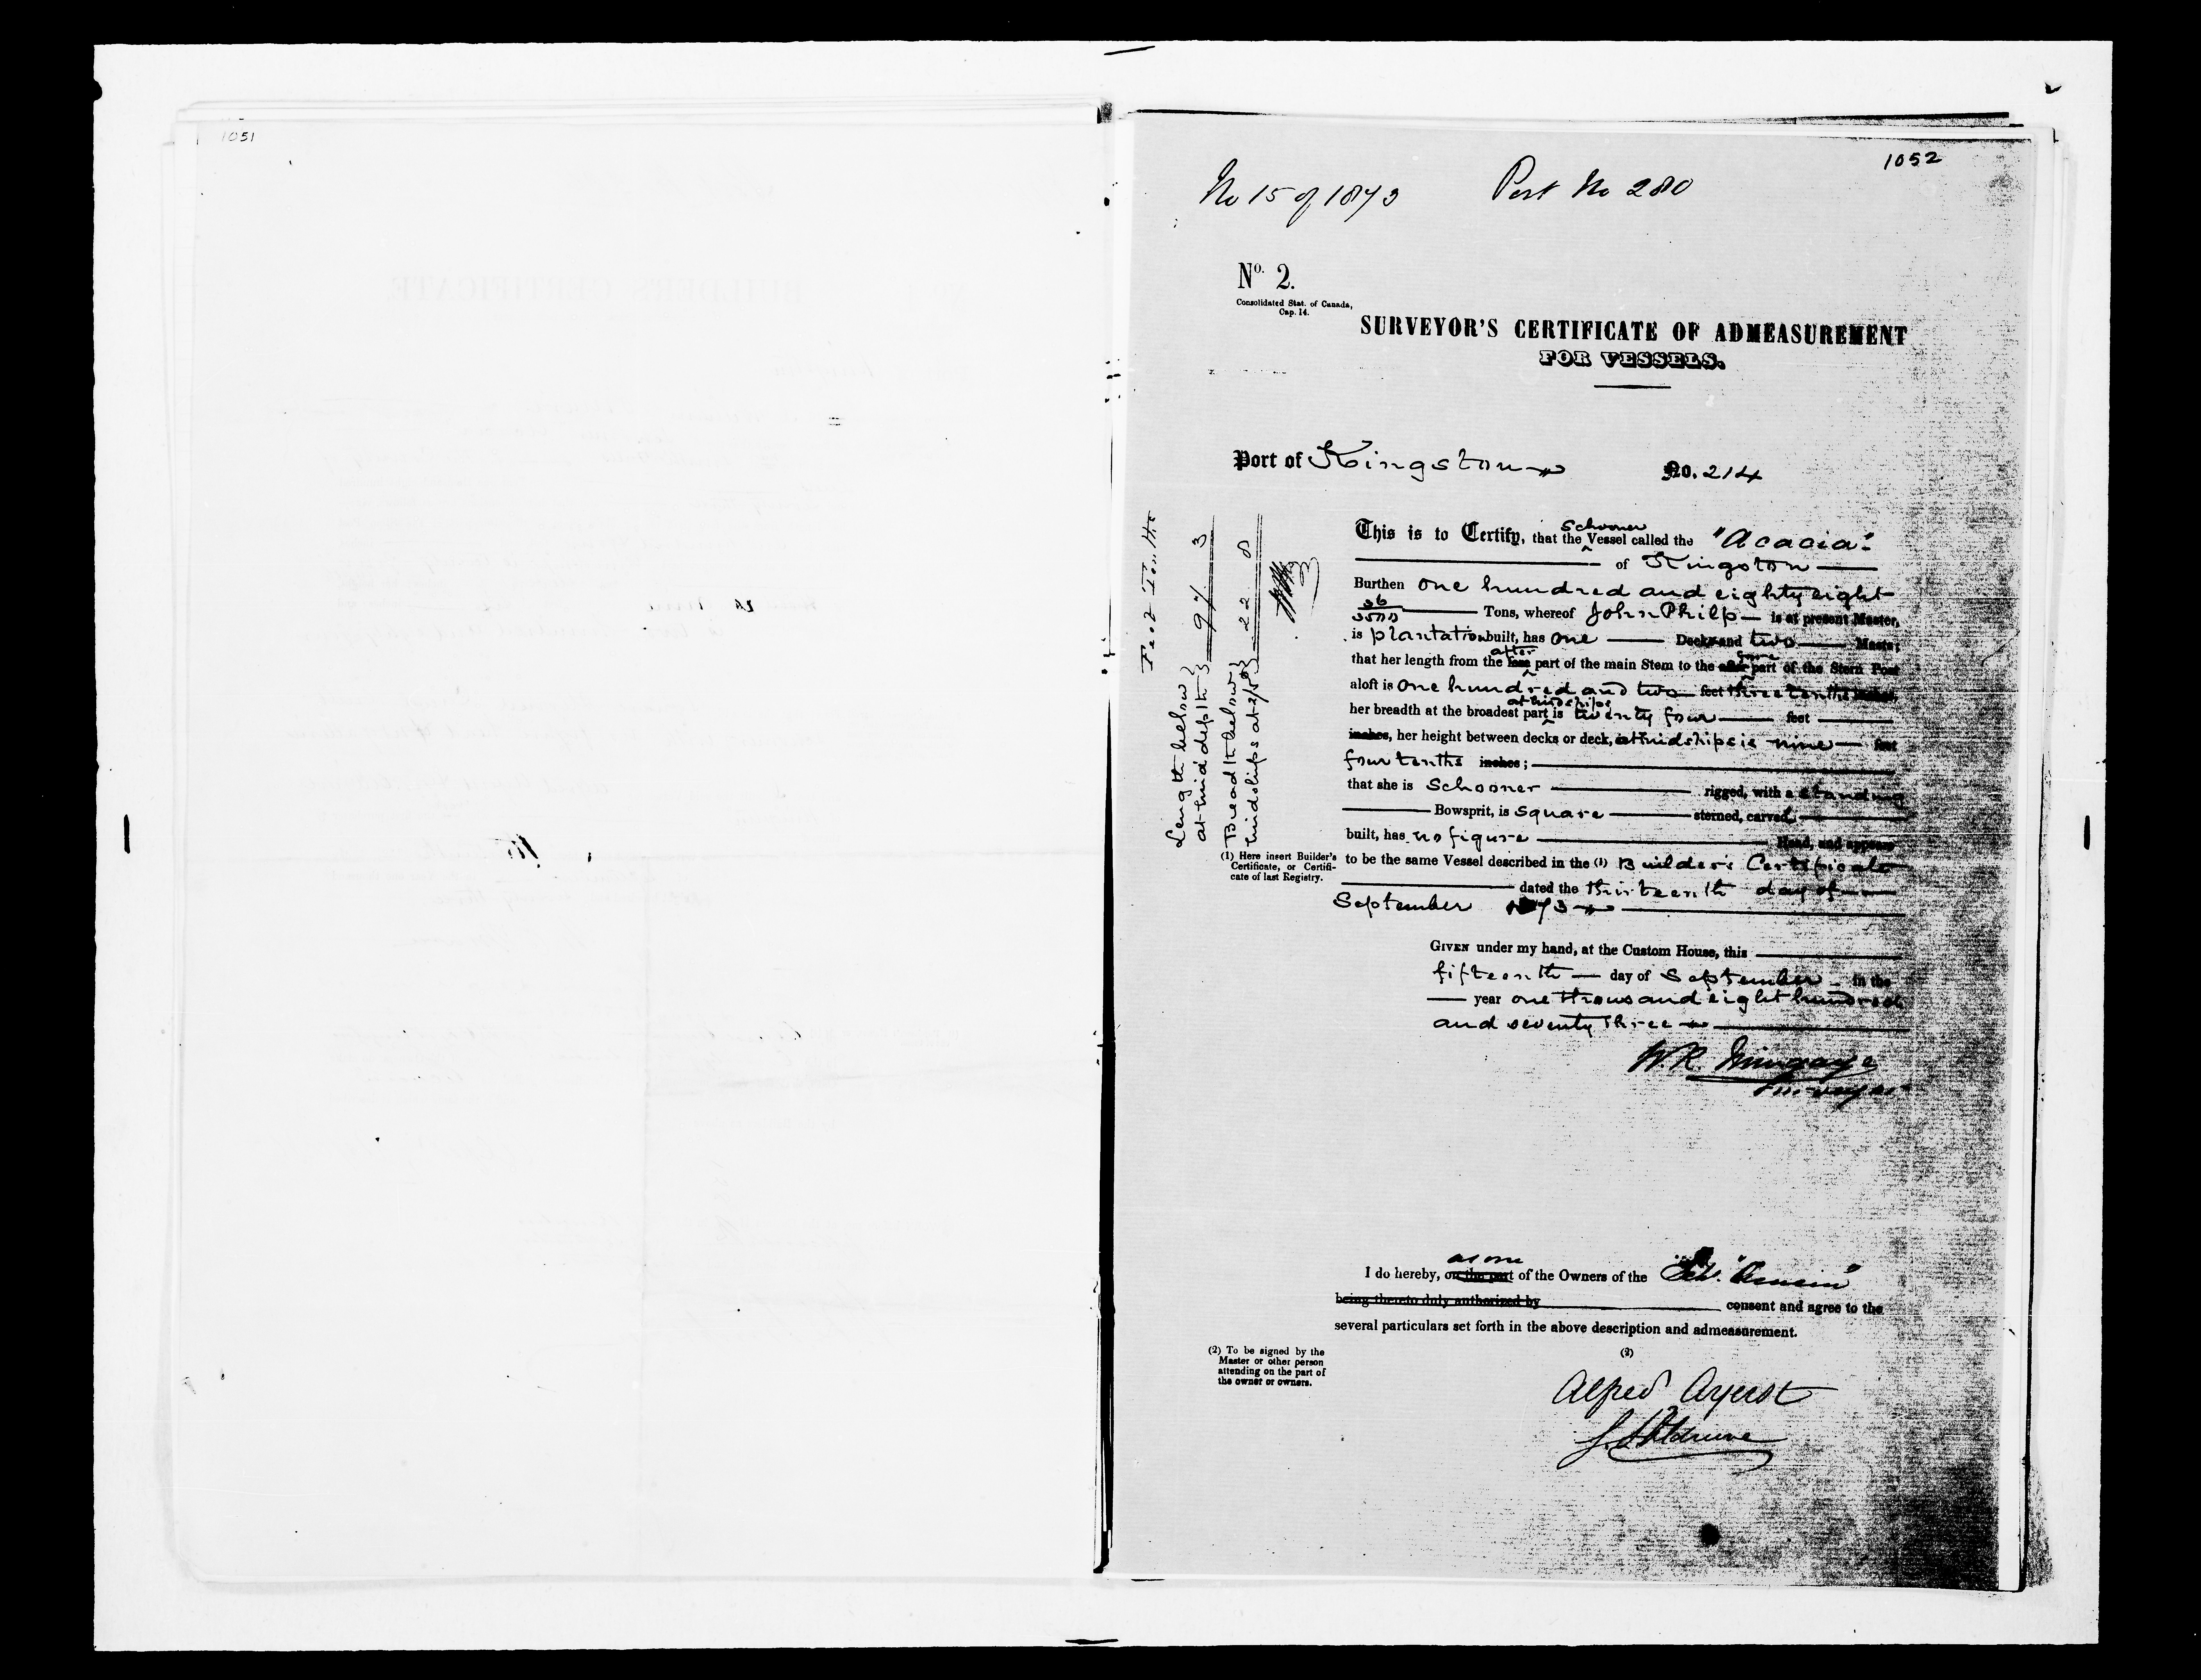 1051
1052
No 15 of 1873 Port No 280
No. 2.
Consolidated Stat. of Canada,
Cap. 14.
SURVEYOR'S CERTIFICATE OF ADMEASUREMENT
FOR VESSELS.
Port of Kingston No. 214
Feet Tenths
Length below
at mid depth 97 3
Breadth below
midships at 2/5 22 8
This is to Certify, that the Schooner Vessel called the "Acacia"
of Kingston
Burthen one hundred and eighty eight
36
3500 Tons, whereof John Philp is at present Master,
is plantation built, has one Deck and two Masts;
that her length from the after fore part of the main Stem to the after fore part of the Stern Post
aloft is one hundred and two feet three tenths inches,
her breadth at the broadest part at midships is twenty four feet
inches, her height between decks or deck, at midships is nine feet
four tenths inches;
that she is Schooner rigged, with a standing
Bowsprit, is square sterned, carvel
built, has no figure Head, and appears
(1) Here insert Builder's
Certificate, or Certifi-
cate of last Registry.
to be the same Vessel described in the (1) Builder's Certificate
dated the thirteenth day of
September 1873
GIVEN under my hand, at the Custom House, this
fifteenth day of September in the
year one thousand eight hundred
and seventy three
W.R. Mingaye
Surveyor
I do hereby, on the part as one of the Owners of the Sch.
being thereto duly authorized by consent and agree to the
several particulars set forth in the above description and admeasurement.
(2) To be signed by the
Master or other person
attending on the part of
the owner or owners.
(2)
Alfred Ayerst